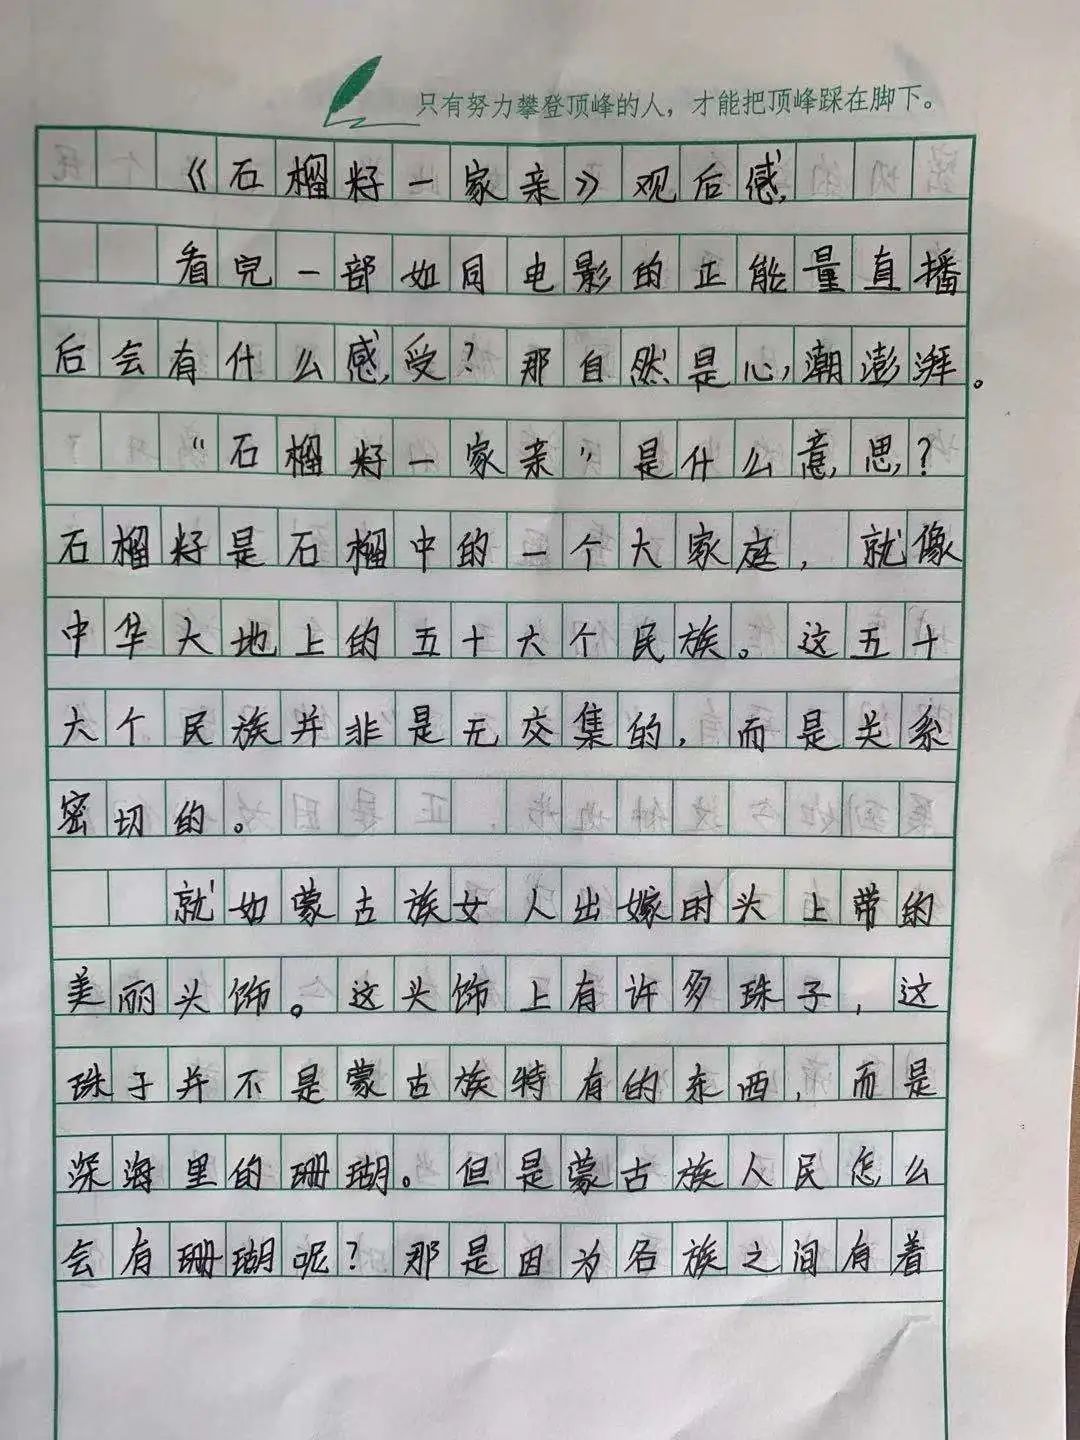 只有努力攀登顶峰的人，才能把顶峰踩在脚下。
《石榴籽一家亲》观后感
看完一部如同电影的正能量直播
后会有什么感受？那自然是心潮澎湃。
“石榴籽一家亲”是什么意思？
石榴籽是石榴中的一个大家庭，就像
中华大地上的五十六个民族。这五十
六个民族并非是无交集的，而是关系
密切的。
就如蒙古族女人出嫁时头上带的
美丽头饰。这头饰上有许多珠子，这
珠子并不是蒙古族特有的东西，而是
深海里的珊瑚。但是蒙古族人民怎么
会有珊瑚呢？那是因为各族之间有着